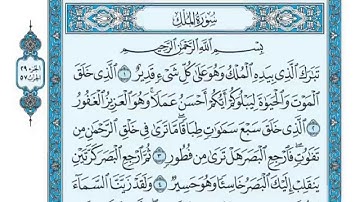 الجزء ٢٩
الحزب ٥٧
سُورَةُ المُلْكِ
بِسْمِ اللَّهِ الرَّحْمَٰنِ الرَّحِيمِ
تَبَٰرَكَ الَّذِى بِيَدِهِ الْمُلْكُ وَهُوَ عَلَىٰ كُلِّ شَىْءٍ قَدِيرٌ ١ الَّذِى خَلَقَ
الْمَوْتَ وَالْحَيَوٰةَ لِيَبْلُوَكُمْ أَيُّكُمْ أَحْسَنُ عَمَلًا وَهُوَ الْعَزِيزُ الْغَفُورُ
٢ الَّذِى خَلَقَ سَبْعَ سَمَٰوَٰتٍ طِبَاقًا مَّا تَرَىٰ فِى خَلْقِ الرَّحْمَٰنِ مِن
تَفَٰوُتٍ فَارْجِعِ الْبَصَرَ هَلْ تَرَىٰ مِن فُطُورٍ ٣ ثُمَّ ارْجِعِ الْبَصَرَ كَرَّتَيْنِ
يَنقَلِبْ إِلَيْكَ الْبَصَرُ خَاسِئًا وَهُوَ حَسِيرٌ ٤ وَلَقَدْ زَيَّنَّا السَّمَآءَ